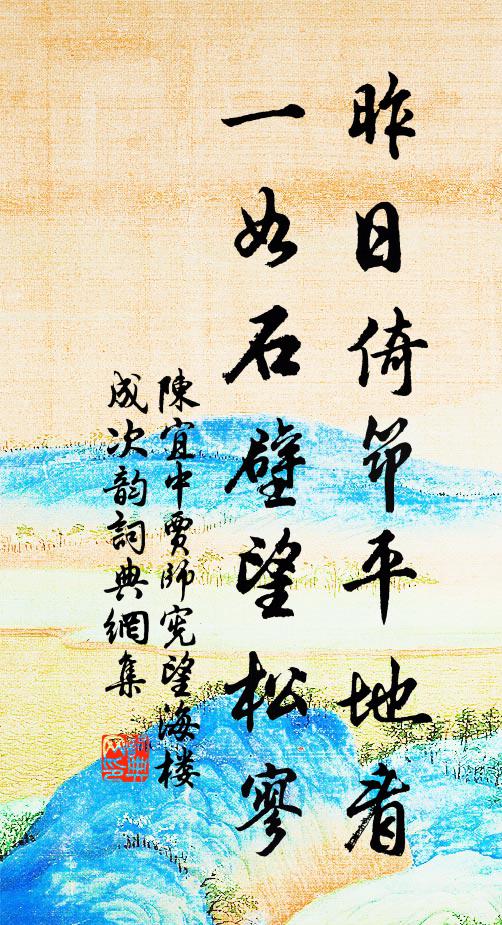 昨日倚筇平地看
一如石壁望松寥
陳宜中賈師宪望海楼
成次韵詞典網集